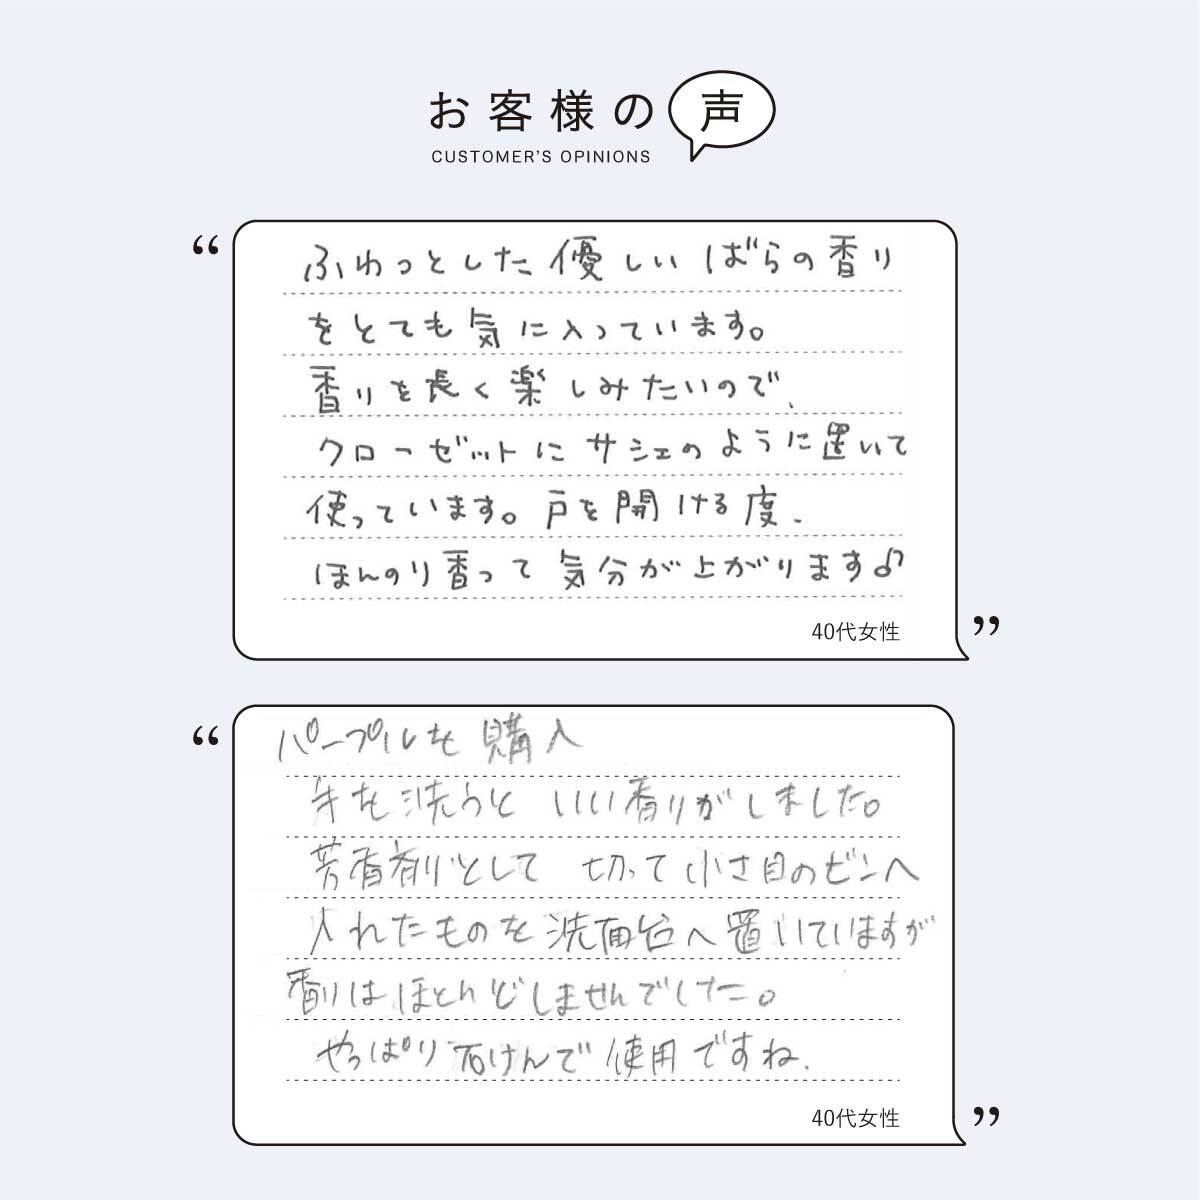 お客様の声
CUSTOMER'S OPINIONS
“
ふわっとした優しいばらの香り
をとても気に入っています。
香りを長く楽しみたいので、
クローゼットにサシェのように置いて
使っています。戸を開ける度、
ほんのり香って気分が上がります♪
40代女性
”
“
パープルを購入
手を洗うといい香りがしました。
芳香剤として 切って小さ目のビンへ
入れたものを洗面台へ置いていますが
香りはほとんどしませんでした。
やっぱり石けんで使用ですね、
40代女性
”